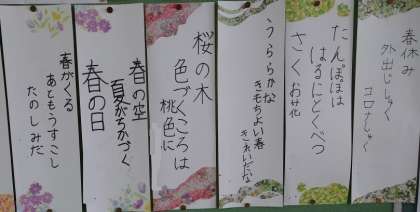 春休み
外出じしゅく
コロナしゃく
たんぽぽは
はるにとくべつ
さくお花
うららかな
きもちよい春
きれいだな
桜の木
色づくころは
桃色に
春の空
夏がちかづく
春の日
春がくる
あともうすこし
たのしみだ